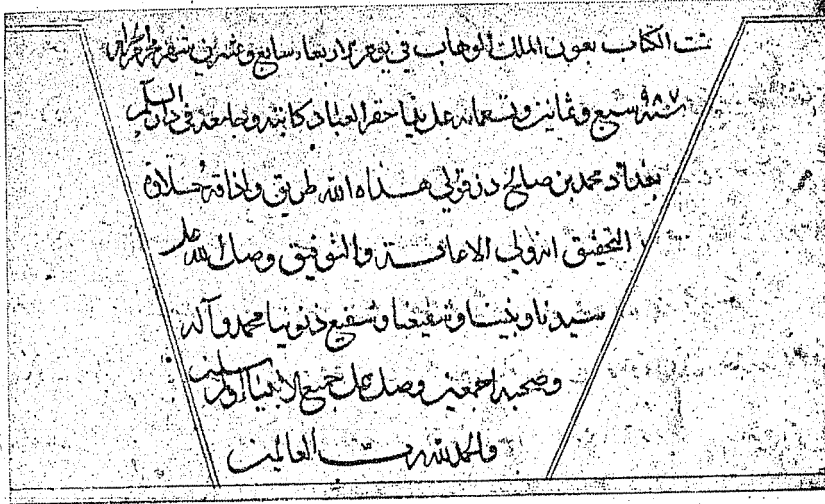 تمت الكتاب بعون الملك الوهاب في يوم الاربعاء سابع وعشرين شهر محرم الحرام
٩٨٧ سنة سبع وثمانين وتسعمائة على يد احقر العباد كاتبه وجامعه في دار السلام
بغداد محمد بن صالح دزفولي هداه الله طريق واذاقه حلاوة
التحقيق انه ولي الاعانة والتوفيق وصلى الله على
سيدنا ونبينا وشفيعنا وشفيع ذنوبنا محمد وآله
وصحبه اجمعين وصل على جميع الانبياء والمرسلين
والحمد لله رب العالمين